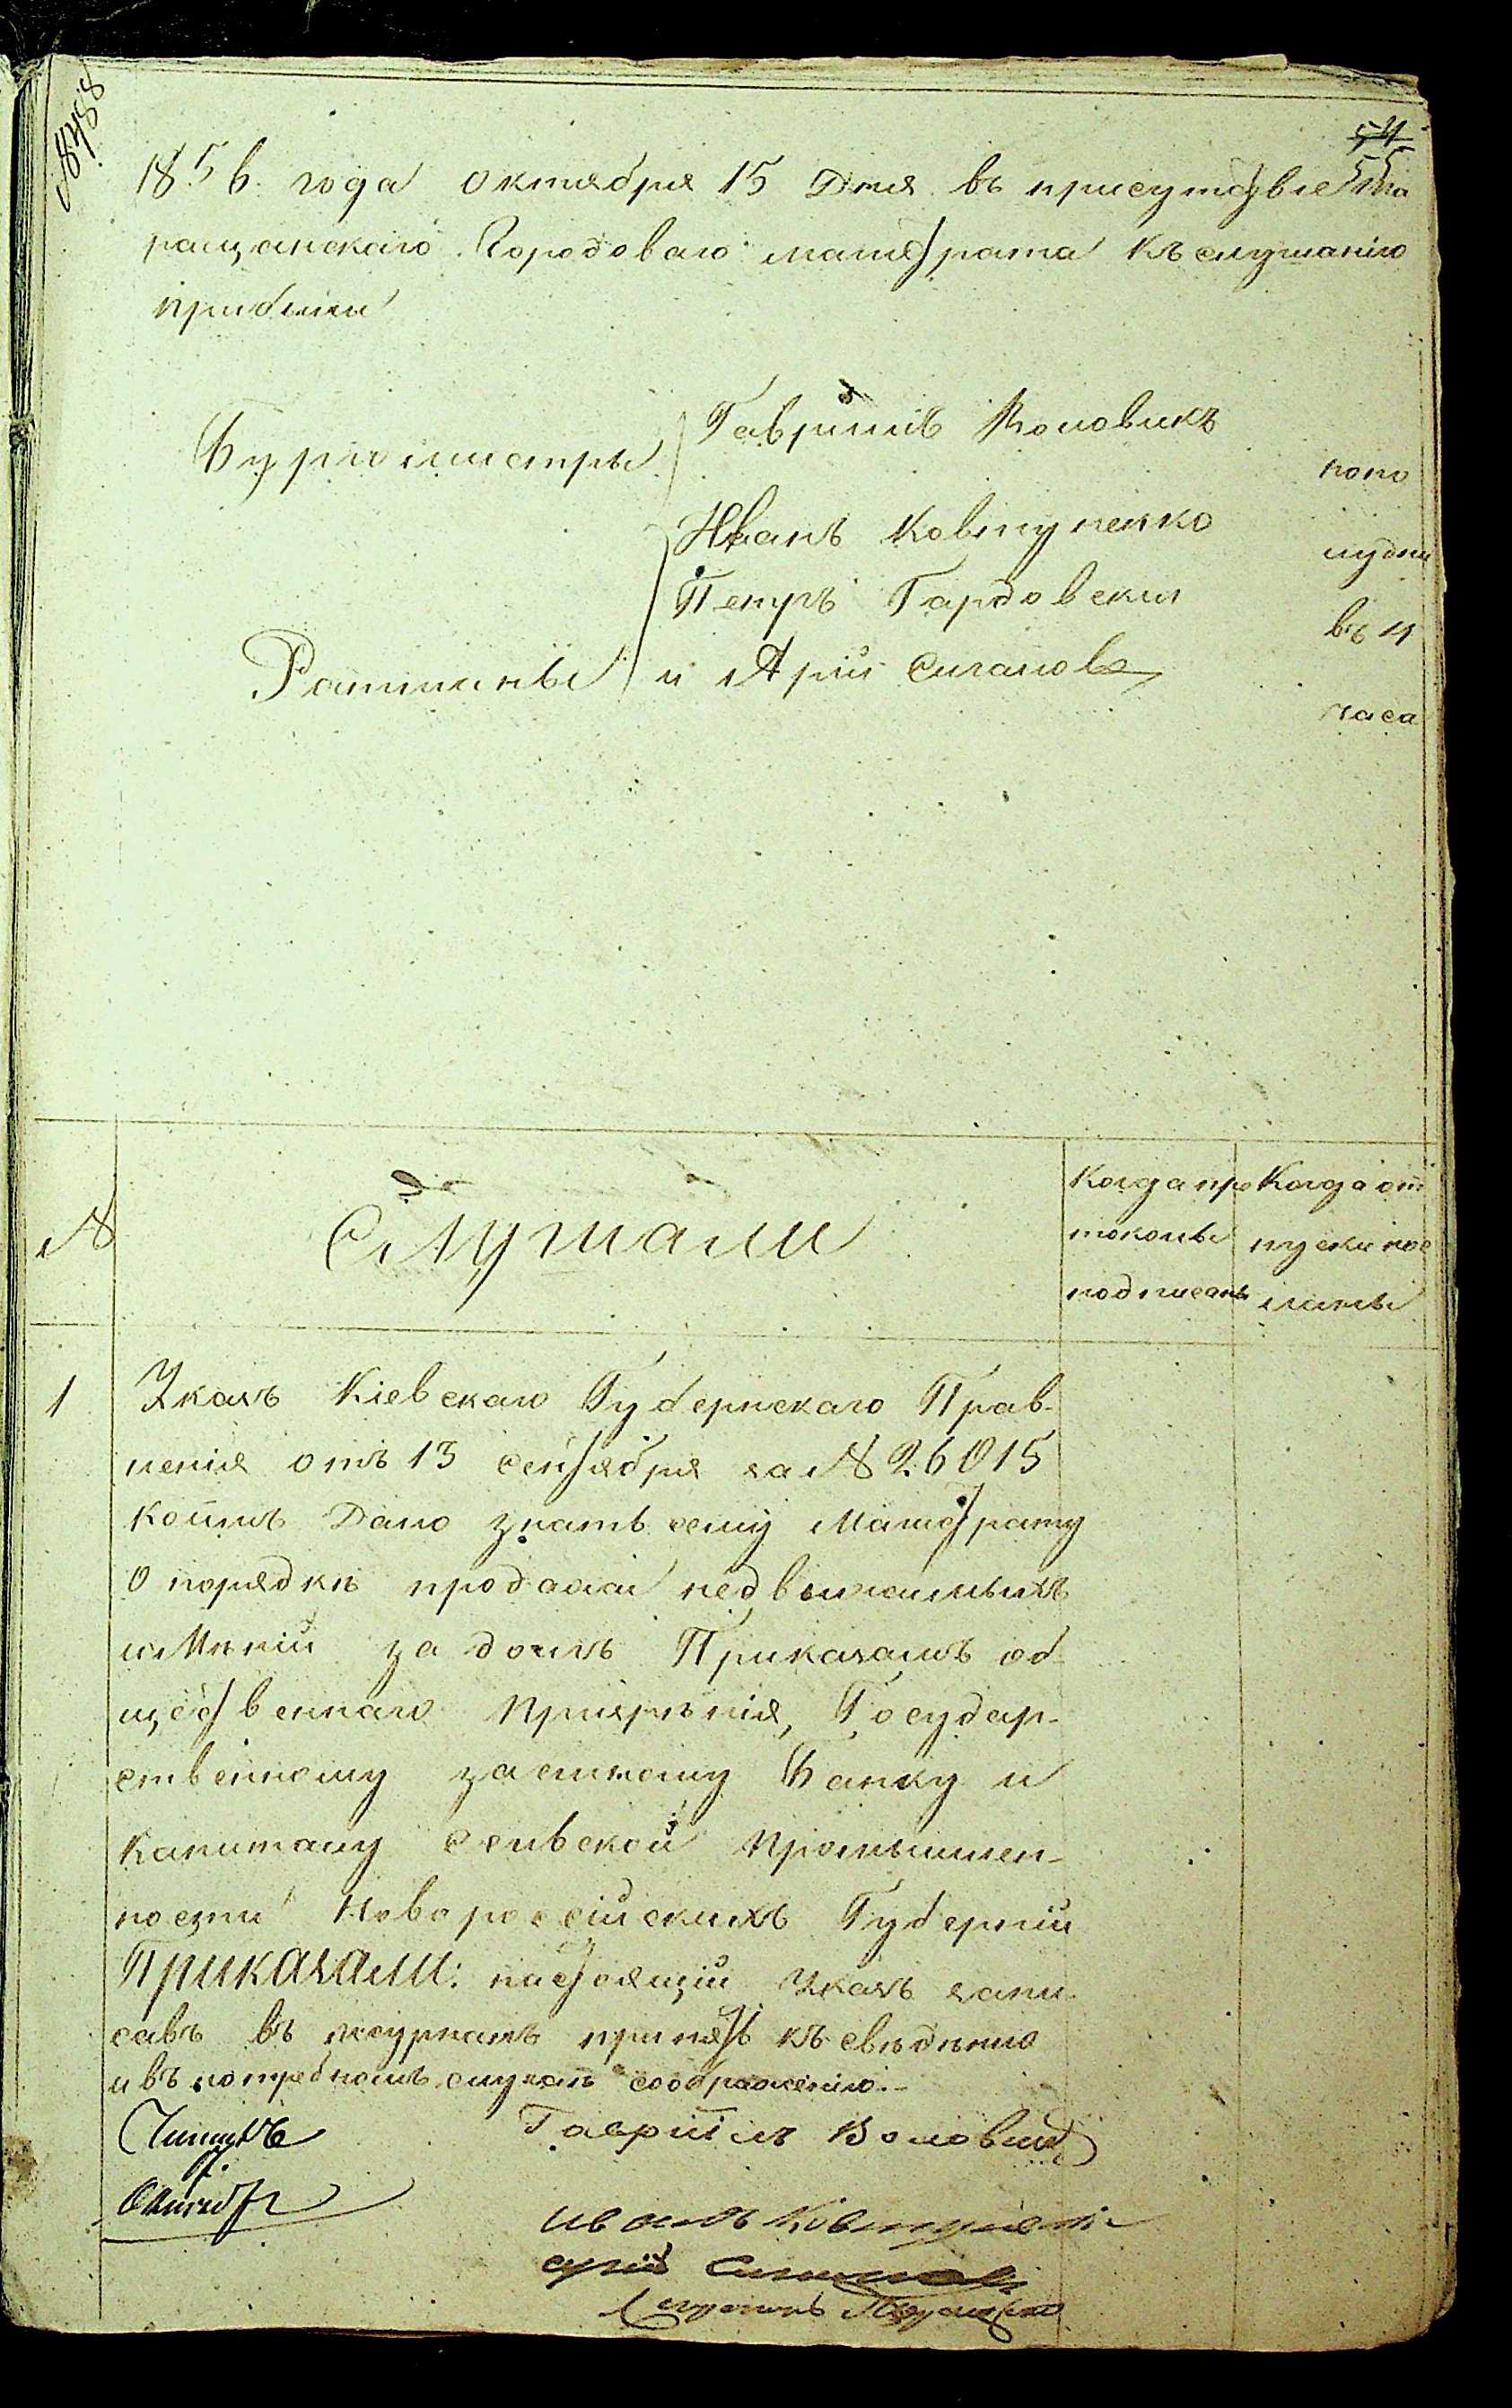 № 488
54
55
1856 года октября 15 дня въ присутствіе Та
ращанскаго Городоваго магистрата къ слушанію
прибыли
Бургомистры
Гавріилъ Воловикъ
Иванъ Ковтуненко
Ратманы
Петръ Гардовскій
и Арій Сигалов
попо
лудни
въ 4
часа
№
Слушали
Когда про
токолы
подписаны
Когда от
пуски пос
ланы
1
Указъ Кіевскаго Губернскаго Прав-
ленія отъ 13 сентября за № 26015
коимъ дано знать сему Магистрату
о порядкѣ продажи недвижимыхъ
имѣній за долгъ Приказамъ об
щественнаго призрѣнія, Государ-
ственному заемному Банку и
Капиталу сельской промышлен-
ности Новороссійскихъ Губерній
Приказали: настоящій Указъ запи
савъ въ журналъ принять къ свѣдѣнію
и въ потребномъ случаѣ соображенію.-
Гавріилъ Воловик
иванъ Ковтуненко